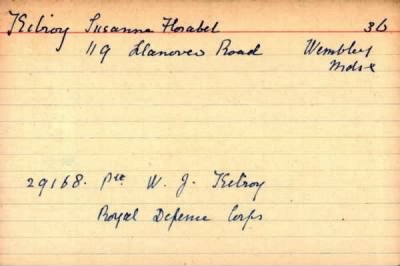 Kilroy Susanna Florabel 36
119 Llanover Road Wembley
Mdsx
29168. Pte W. J. Kilroy
Royal Defence Corps